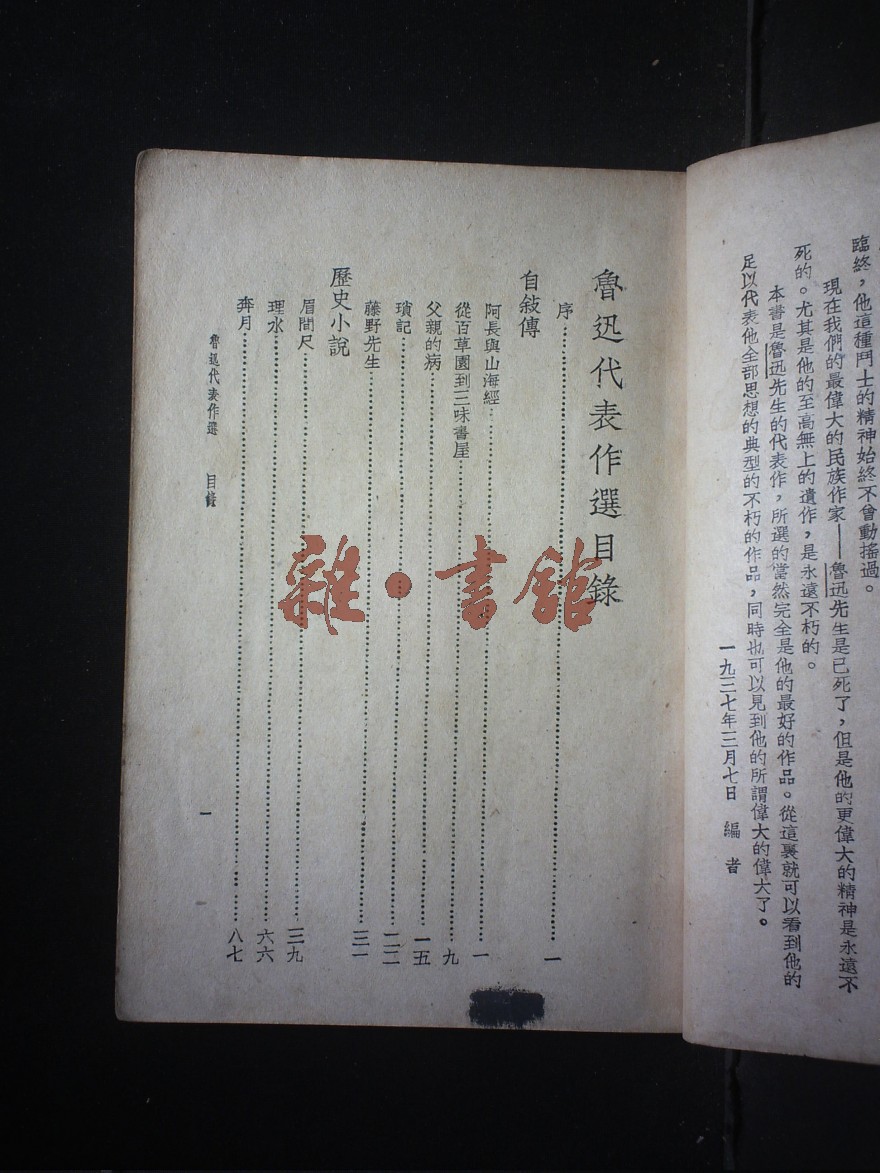 臨終，他這種鬥士的精神始終不曾動搖過。
現在我們的最偉大的民族作家——魯迅先生是已死了，但是他的更偉大的精神是永遠不
死的。尤其是他的至高無上的遺作，是永遠不朽的。
本書是魯迅先生的代表作，所選的當然完全是他的最好的作品。從這裏就可以看到他的
足以代表他全部思想的典型的不朽的作品，同時也可以見到他的所謂偉大的偉大了。
一九三七年三月七日 編者
魯迅代表作選目錄
序……一
自敍傳
阿長與山海經……一
從百草園到三味書屋……九
父親的病……一五
瑣記……二二
藤野先生……三一
歷史小說
眉間尺……三九
理水……六六
奔月……八七
魯迅代表作選 目錄
一
雜·書館